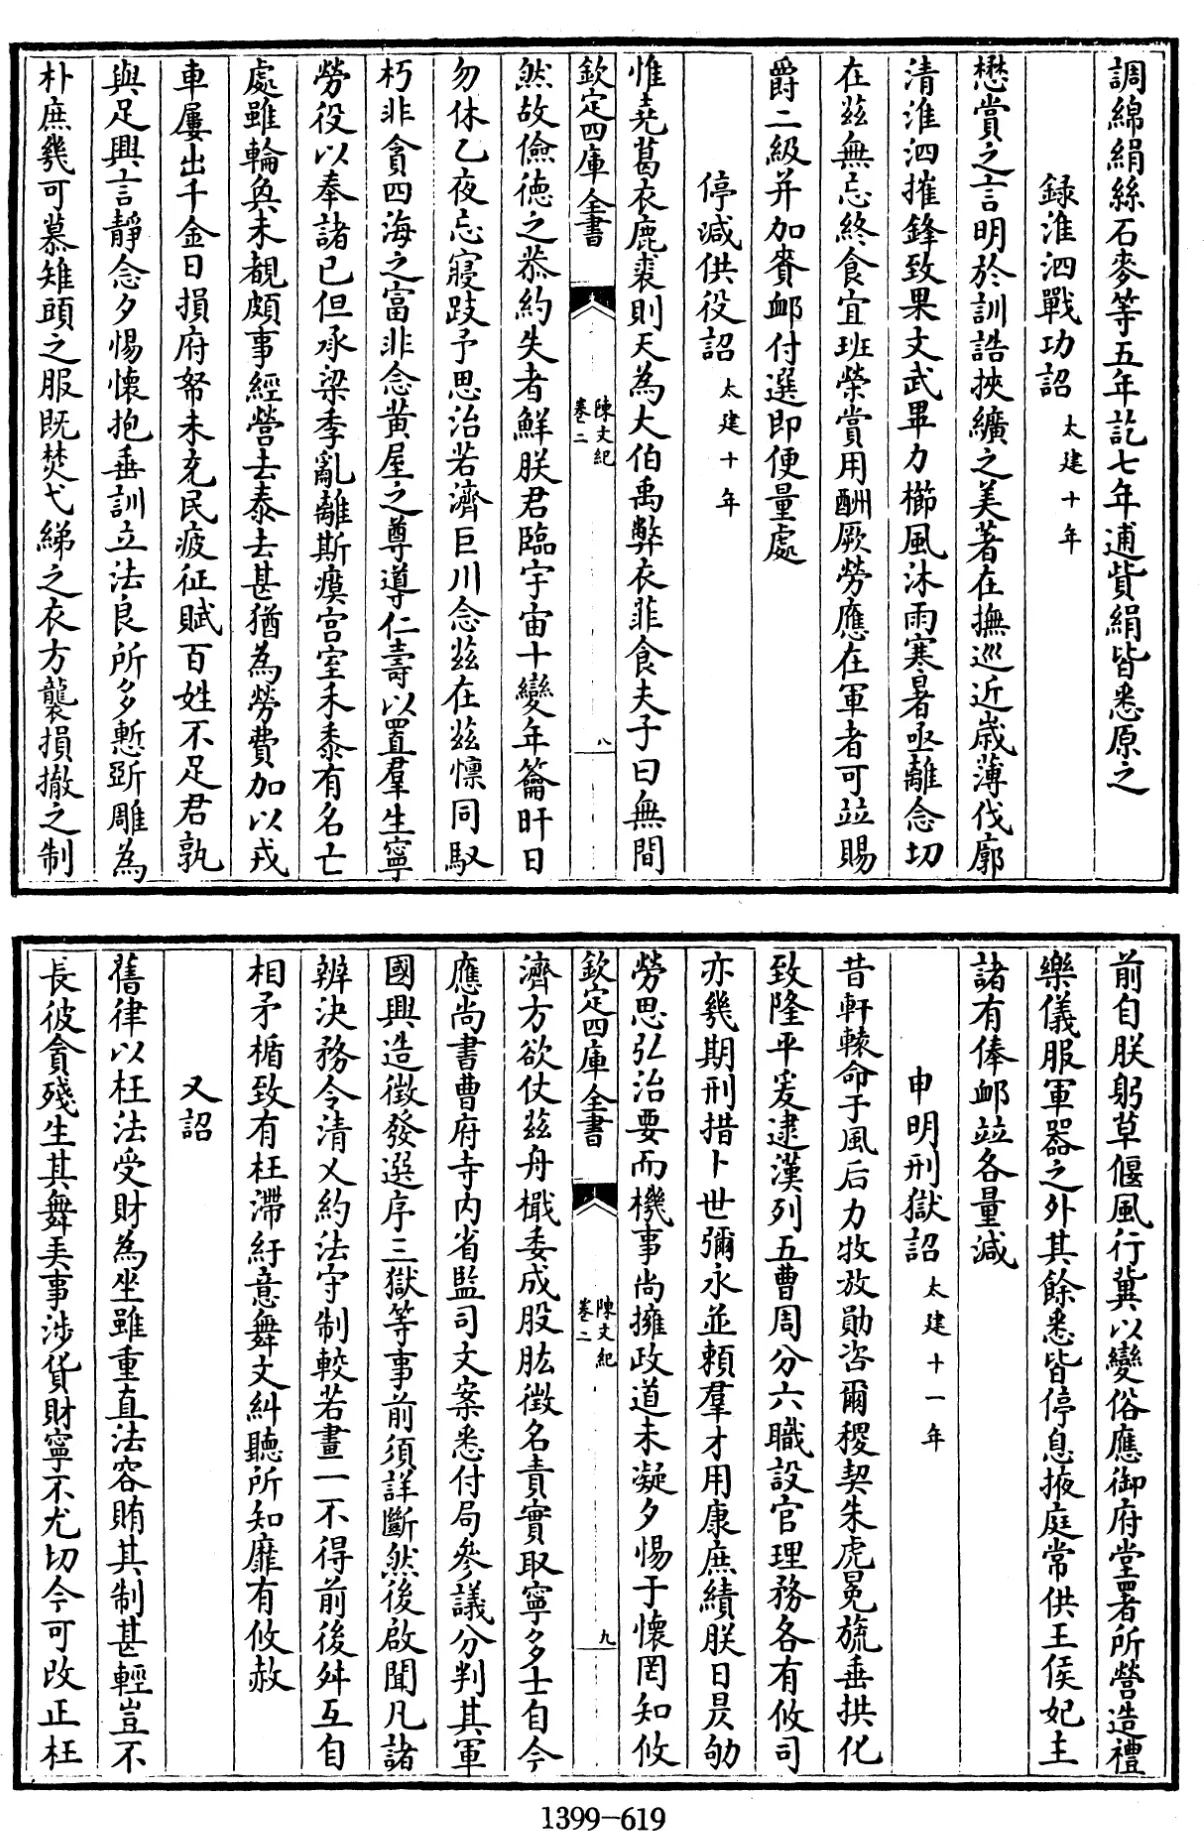 調綿絹絲石麥等五年訖七年逋貲絹皆悉原之
録淮泗戰功詔 太建十年
懋賞之言明於訓誥挾纊之美著在撫巡近歳薄伐廓
清淮泗摧鋒致果文武畢力櫛風沐雨寒暑亟離念切
在兹無忘終食宜班榮賞用酬厥勞應在軍者可竝賜
爵二級并加賚䘏付選即便量處
停減供役詔 太建十年
惟堯葛衣鹿裘則天為大伯禹弊衣菲食夫子曰無間
欽定四庫全書 陳文紀 卷二 八
然故儉徳之恭約失者鮮朕君臨宇宙十變年籥旰日
勿休乙夜忘寢跂予思治若濟巨川念兹在兹懍同馭
朽非貪四海之富非念黄屋之尊導仁壽以置羣生寧
勞役以奉諸己但承梁季亂離斯瘼宫室禾黍有名亡
處雖輪奐未覩頗事經營去泰去甚猶為勞費加以戎
車屢出千金日損府帑未充民疲征賦百姓不足君孰
與足興言靜念夕惕懷抱垂訓立法良所多慙斲雕為
朴庶幾可慕雉頭之服既焚弋綈之衣方襲損撤之制
前自朕躬草偃風行冀以變俗應御府堂署所營造禮
樂儀服軍器之外其餘悉皆停息掖庭常供王侯妃主
諸有俸䘏竝各量減
申明刑獄詔 太建十一年
昔軒轅命于風后力牧放勛咨爾稷契朱虎冕旒垂拱化
致隆平爰逮漢列五曹周分六職設官理務各有攸司
亦幾期刑措卜世彌永並頼羣才用康庶績朕日昃劬
勞思弘治要而機事尚擁政道未凝夕惕于懷罔知攸
欽定四庫全書 陳文紀 卷二 九
濟方欲仗兹舟檝委成股肱徵名責實取寧多士自今
應尚書曹府寺内省監司文案悉付局參議分判其軍
國興造徵發選序三獄等事前須詳斷然後啟聞凡諸
辨決務令清乂約法守制較若畫一不得前後舛互自
相矛楯致有枉滯紆意舞文糾聽所知靡有攸赦
又詔
舊律以枉法受財為坐雖重直法容賄其制甚輕豈不
長彼貪殘生其舞弄事涉貨財寧不尤切今可改正枉
1399-619